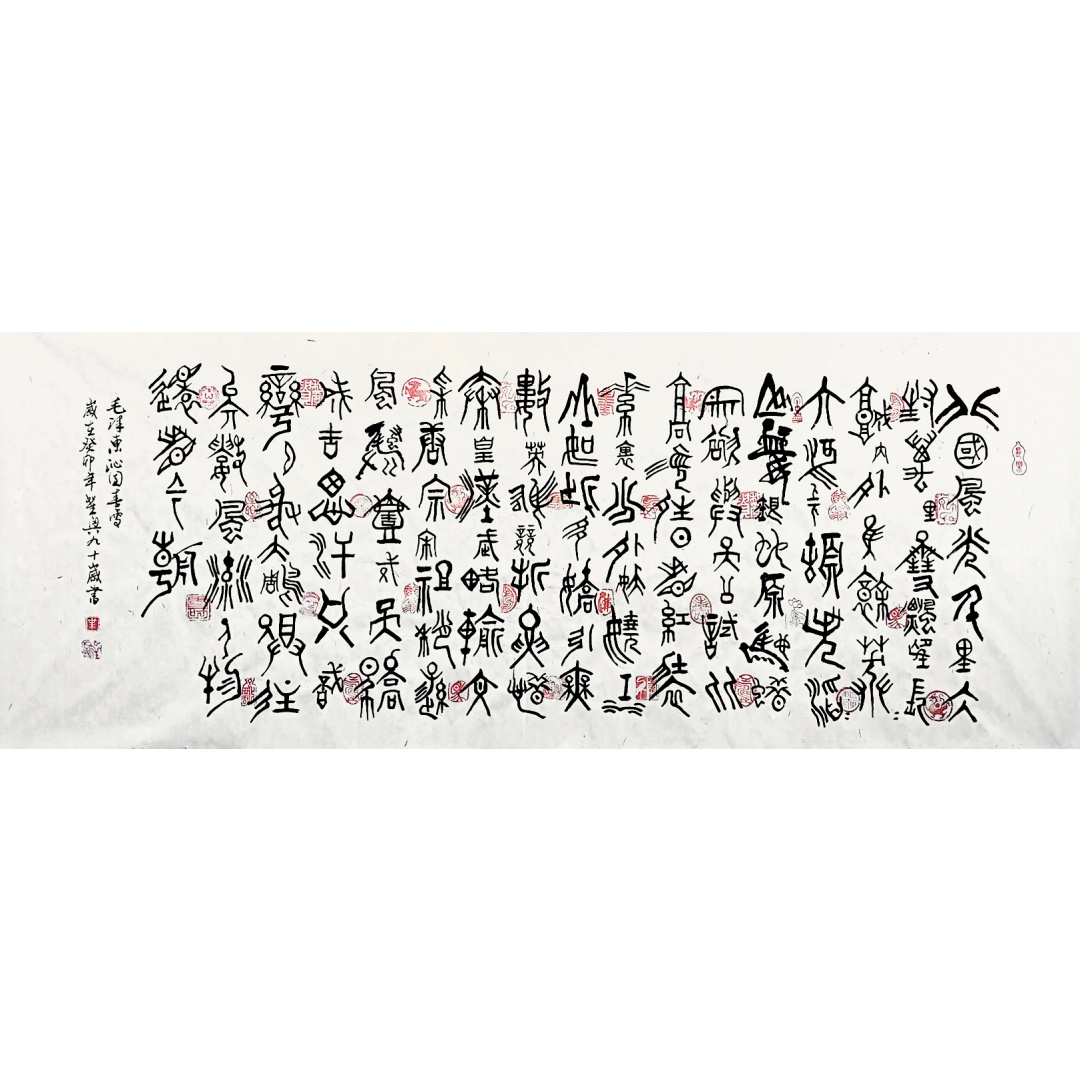 北國風光千里冰
封萬里雪飄望長
城内外惟餘莽:
大河上下頓失滔:
山舞銀蛇原馳蠟
象欲與天公試比
高須晴日看紅裝
素裹分外妖嬈江
山如此多嬌引無
數英雄競折腰惜
秦皇漢武略輸文
采唐宗宋祖稍遜
風騷一代天驕
成吉思汗只識
彎弓射大鵰俱往
矣數風流人物
還看今朝
毛澤東沁園春雪
歲在癸卯年九十歲書